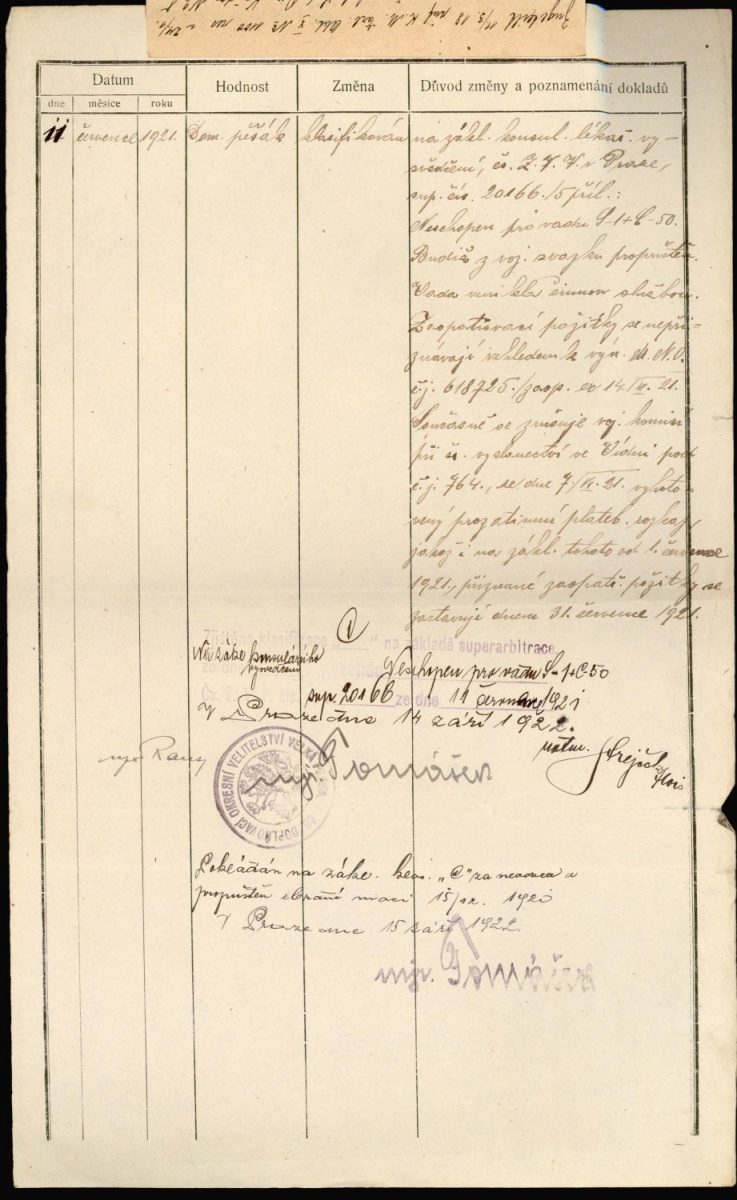 Datum
Hodnost
Změna
Důvod změny a poznamenání dokladů
dne
měsíce
roku
11 července 1921. Dom. pěšák klasifikován na zákl. konsul. lékař. vy-
svědčení, čs. Z. V. V. v Praze,
sup. čís. 20166./5 příl.:
Neschopen pro vadu S-1+C-50.
Budiž z voj. svazku propuštěn.
Vada vznikla činnou službou.
Zaopatřovací požitky se nepři-
znávají vzhledem k výn. M.N.O.
č.j. 618725./zaop. ex 14.
Současně se zrušuje voj. komisí
při čs. vyslanectví ve Vídni pod
č.j. 764., ze dne 7./VI. 21. vyhoto-
vený prozatimní plateb. rozkaz,
jakož i na zákl. tohoto od 1. července
1921., přiznané zaopatř. požitky se
zastavují dnem 31. července 1921.
na základě superarbitrace
Na zákl. konsulárního
vysvědčení
Neschopen pro vadu S-1+C-50
sup. 20166 ze dne 11 července 1921
V Praze dne 14 září 1922.
mjr. Tomášek
DOPLŇOVACÍ OKRESNÍ VELITELSTVÍ VELKÁ
na zákl. klas. „C“ za a
propuštěn z branné moci
V Praze dne 15 září 1922.
mjr. Tomášek